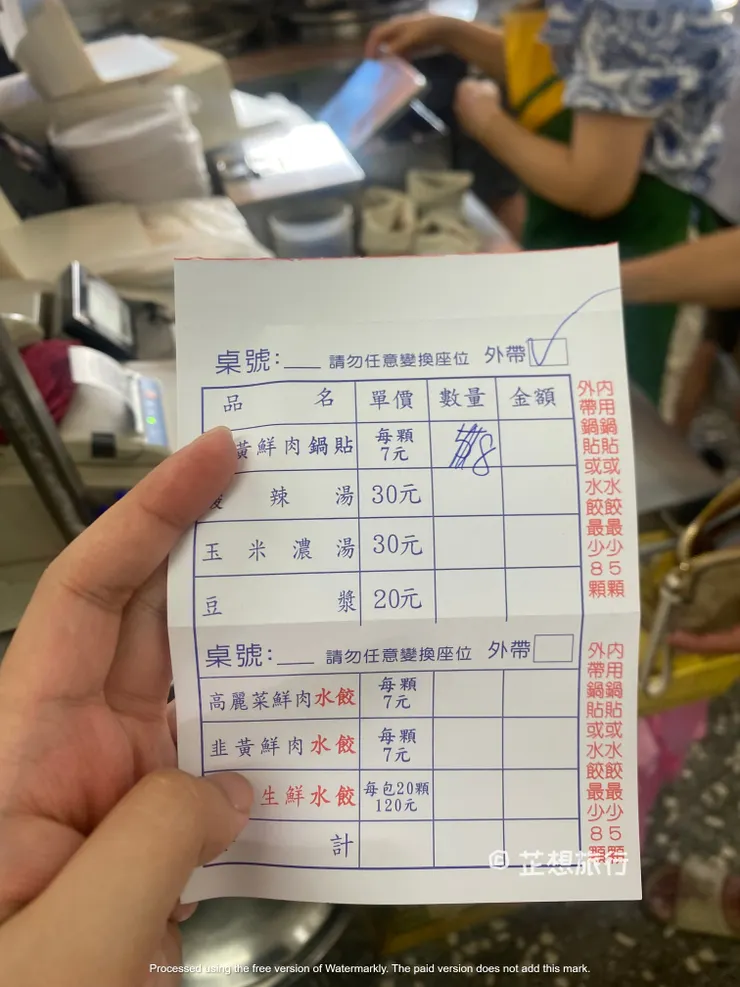 桌號: 請勿任意變換座位 外帶
品名 單價 數量 金額
黃鮮肉鍋貼 每顆7元 8
辣湯 30元
玉米濃湯 30元
豆漿 20元
內用鍋貼或水餃最少5顆
外帶鍋貼或水餃最少8顆
桌號: 請勿任意變換座位 外帶
高麗菜鮮肉水餃 每顆7元
韭黃鮮肉水餃 每顆7元
生鮮水餃 每包20顆120元
計
內用鍋貼或水餃最少5顆
外帶鍋貼或水餃最少8顆
芷想旅行
Processed using the free version of Watermarkly. The paid version does not add this mark.